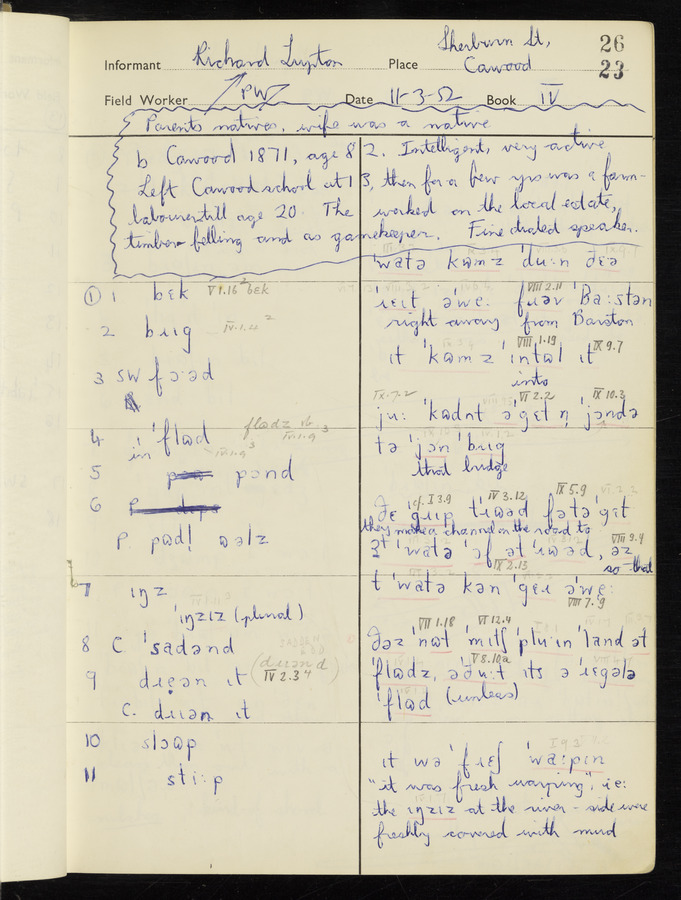 Sherburn St, 26
Informant Richard Lupton Place Cawood 23
Field Worker PW Date 11-3-52 Book IV
Parents natives, wife was a native
b Cawood 1871, age 82. Intelligent, very active
Left Cawood school at 13, then for a few yrs was a farm-
labourer till age 20. The worked on the local estate,
timber-felling and as gamekeeper. Fine dialect speaker.
① 1 bɛk V 1.16 ² bɛk
2 bɹɪg IV.1.2 ²
3 SW fɔːəd
4 ɪn ˈflɷd flɷdz vb. ³ IV.1.9 ³
5 pɔnd
6
P. pɷdl̩ ɷəlz
7 ɪŋz
ˈɪŋzɪz (plural)
8 C ˈsadənd
9 dɹɛən ɪt (dɹɪənd) IV 2.3 4
C. dɹɪən ɪt
10 slɔɷp
11 stɪːp
ˈwatə kɷmz ˈduːn ðɛə
ˈɹɛɪt əˈwɛː fɹəv VIII 2.11 ˈBaːstən
right away from Barston
ɪt ˈkɷmz VIII 1.19 ˈɪntəl ɪt IX 9.7
into
IX.7.2 VI 2.2 IX 10.3
juː ˈkɷdnt əgɛt n̩ ˈjɔndə
tə ˈjɔn ˈbɹɪg
that bridge
cf. I 3.9 IV 3.12 IX 5.9
ðɛ ˈgɹɪp tˈɹɷəd fətə ˈgɛt
they make a channel on the road to
t ˈwatə ˈɔf ət ˈɹɷəd, əz VIII 9.4
IX 2.15 so that
t ˈwatə kən ˈgɛɪ əˈwɛː
VIII 7.9
VII 1.18 VI 12.4
ðəz ˈnɷt ˈmɪtʃ ˈpluːɪn ˈland ət
V 8.10a
ˈflɷdz, əduːt ɪts ə ˈɹɛgələ
ˈflɷd (unless)
I 9 3
ɪt wə ˈfɹɛʃ ˈwaːpɪn
"it was fresh warping", ie:
the ɪŋzɪz at the river-side were
freshly covered with mud